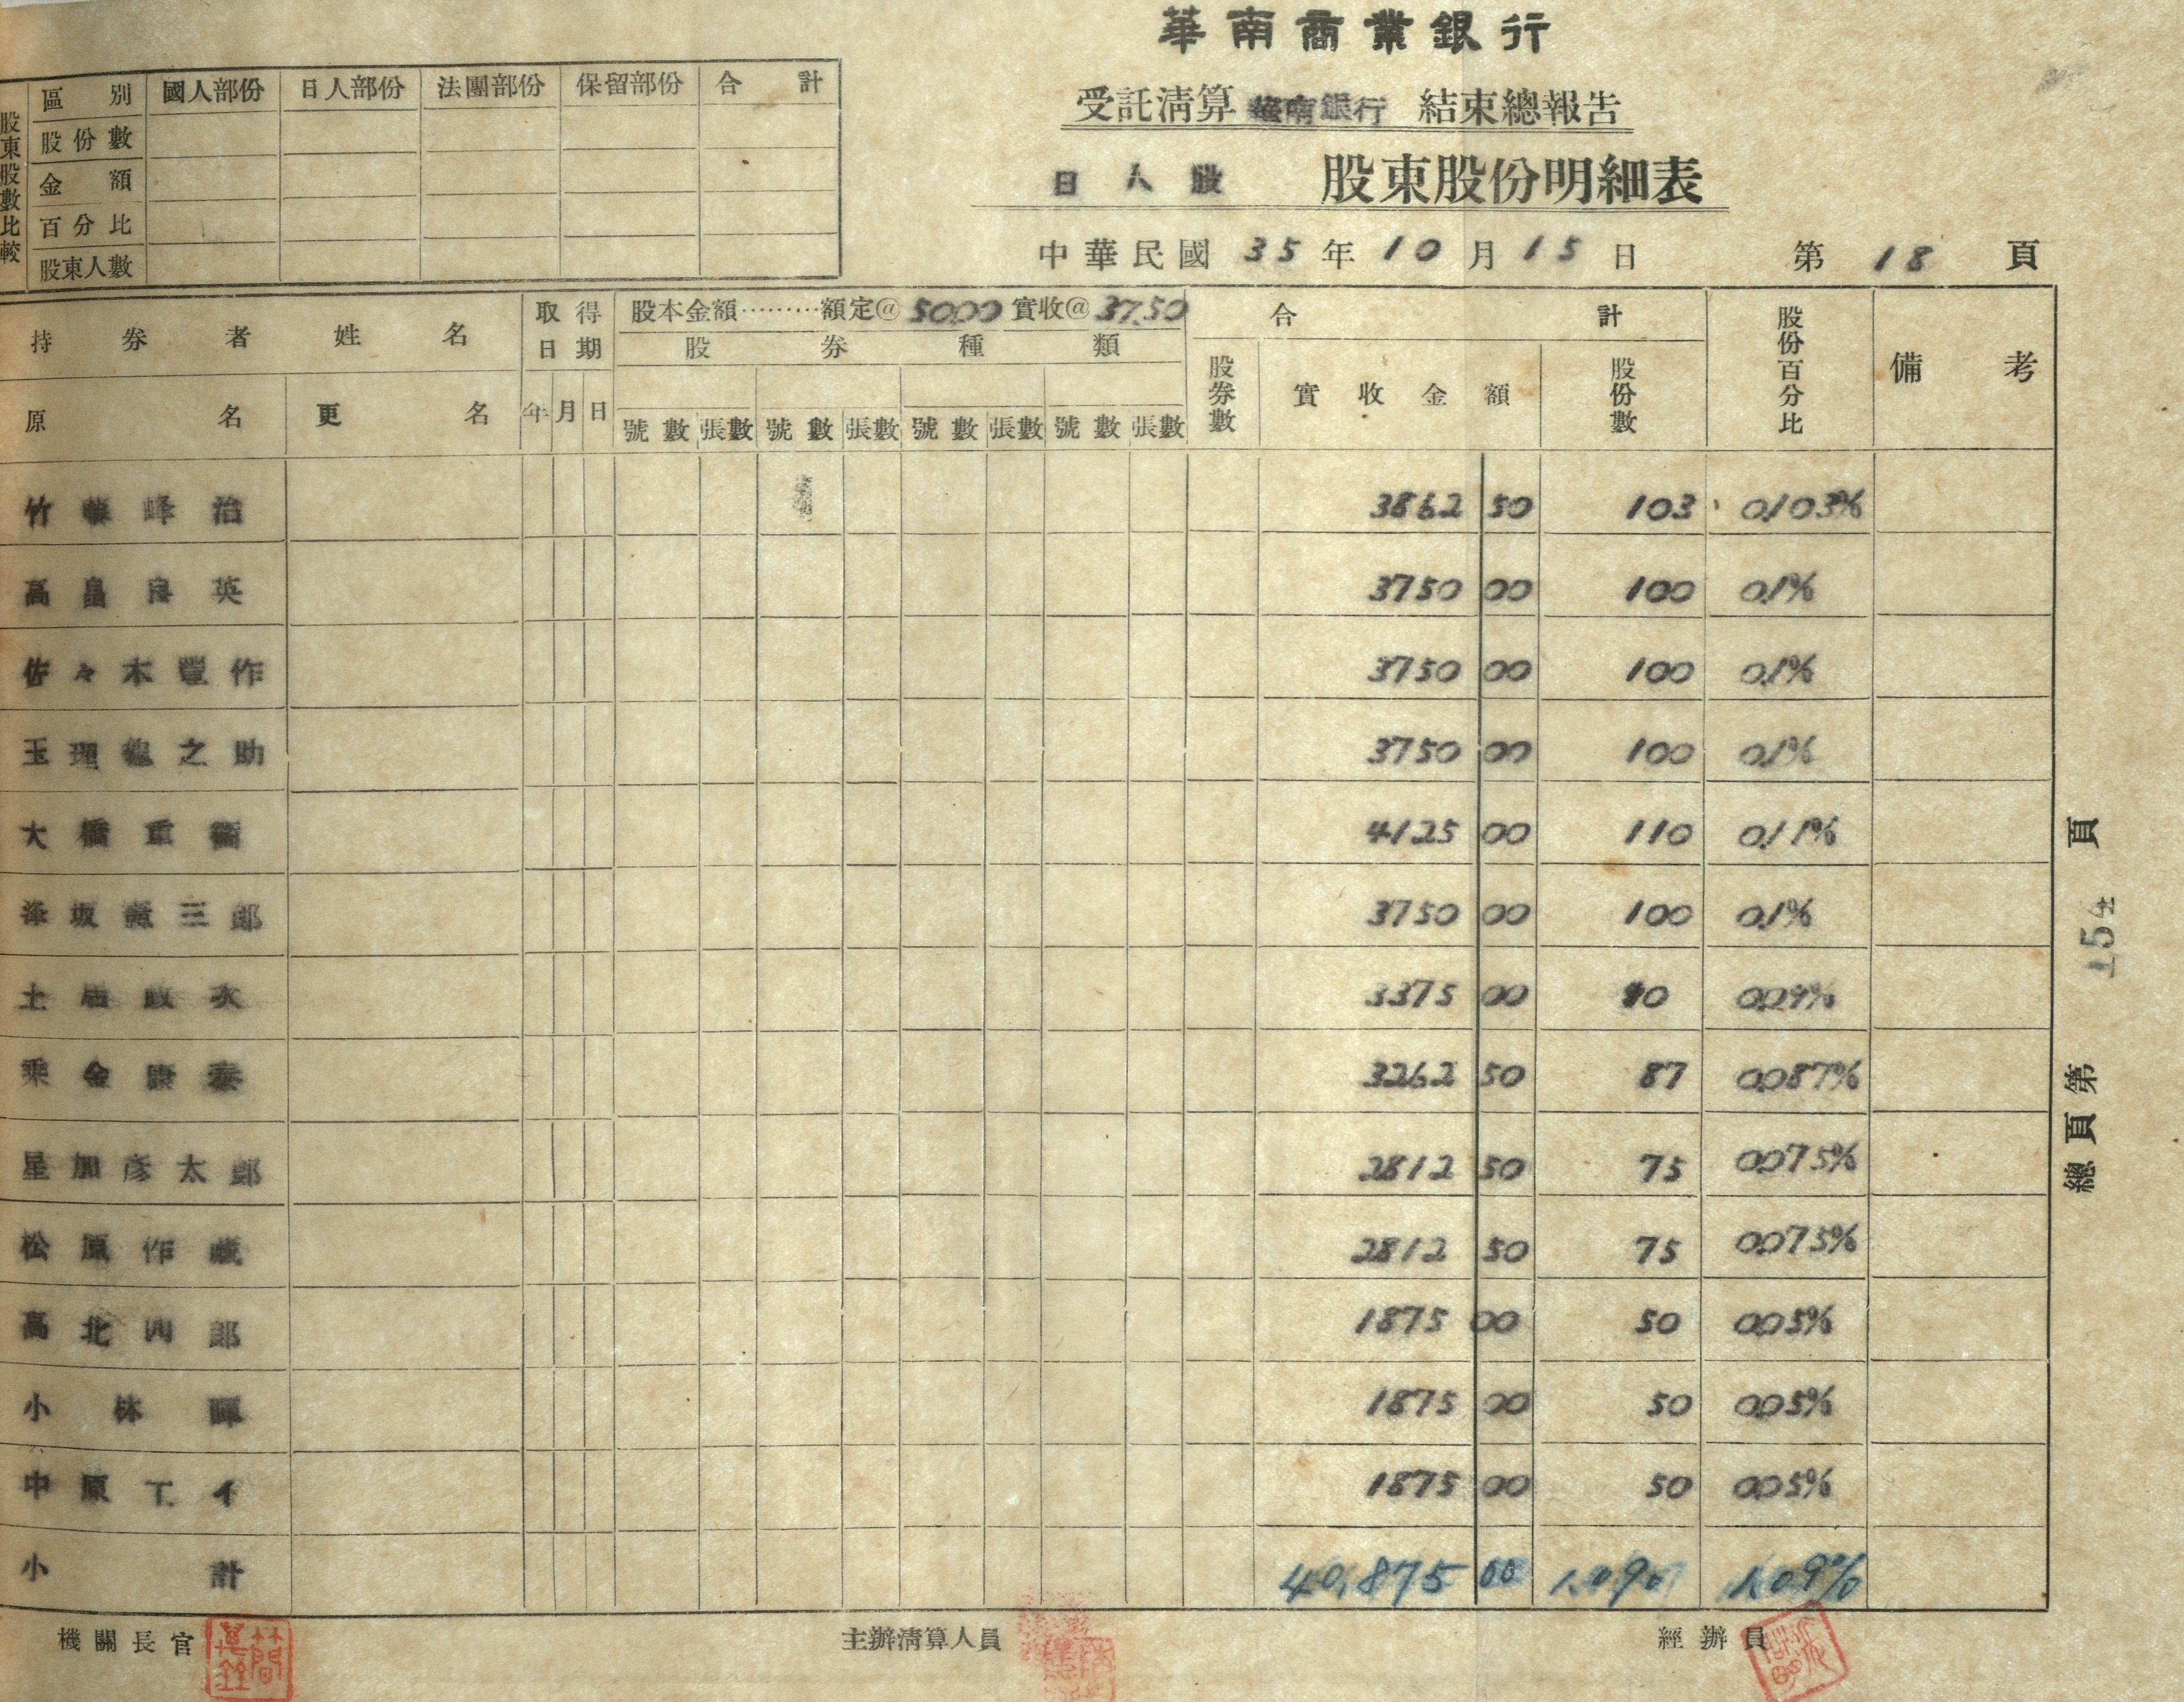 華南商業銀行
受託清算 華南銀行 結束總報告
日人股 股東股份明細表
中華民國 35 年 10 月 15 日 第 18 頁
股東股數比較
區別 國人部份 日人部份 法團部份 保留部份 合計
股份數
金額
百分比
股東人數
持券者姓名 取得日期 股本金額………額定@ 50.00 實收@ 37.50 合計 股份百分比 備考
股券種類
原名 更名 年 月 日 號數 張數 號數 張數 號數 張數 號數 張數 股券數 實收金額 股份數
竹藤峰治 3862 50 103 0.103%
高畠良英 3750 00 100 0.1%
佐々木豐作 3750 00 100 0.1%
玉理龍之助 3750 00 100 0.1%
大橋重 4125 00 110 0.11%
坂三郎 3750 00 100 0.1%
土居政次 3375 00 90 0.09%
乘金康泰 3262 50 87 0.087%
星加彦太郎 2812 50 75 0.075%
松原作藏 2812 50 75 0.075%
高北四郎 1875 00 50 0.05%
小林暉 1875 00 50 0.05%
中原工イ 1875 00 50 0.05%
小計 40,875 00 1,090 1.09%
機關長官 主辦清算人員 經辦員
總頁第 154 頁